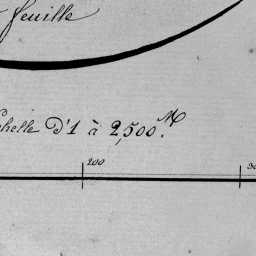 feuille
Echelle D'1 à 2,500.M
200